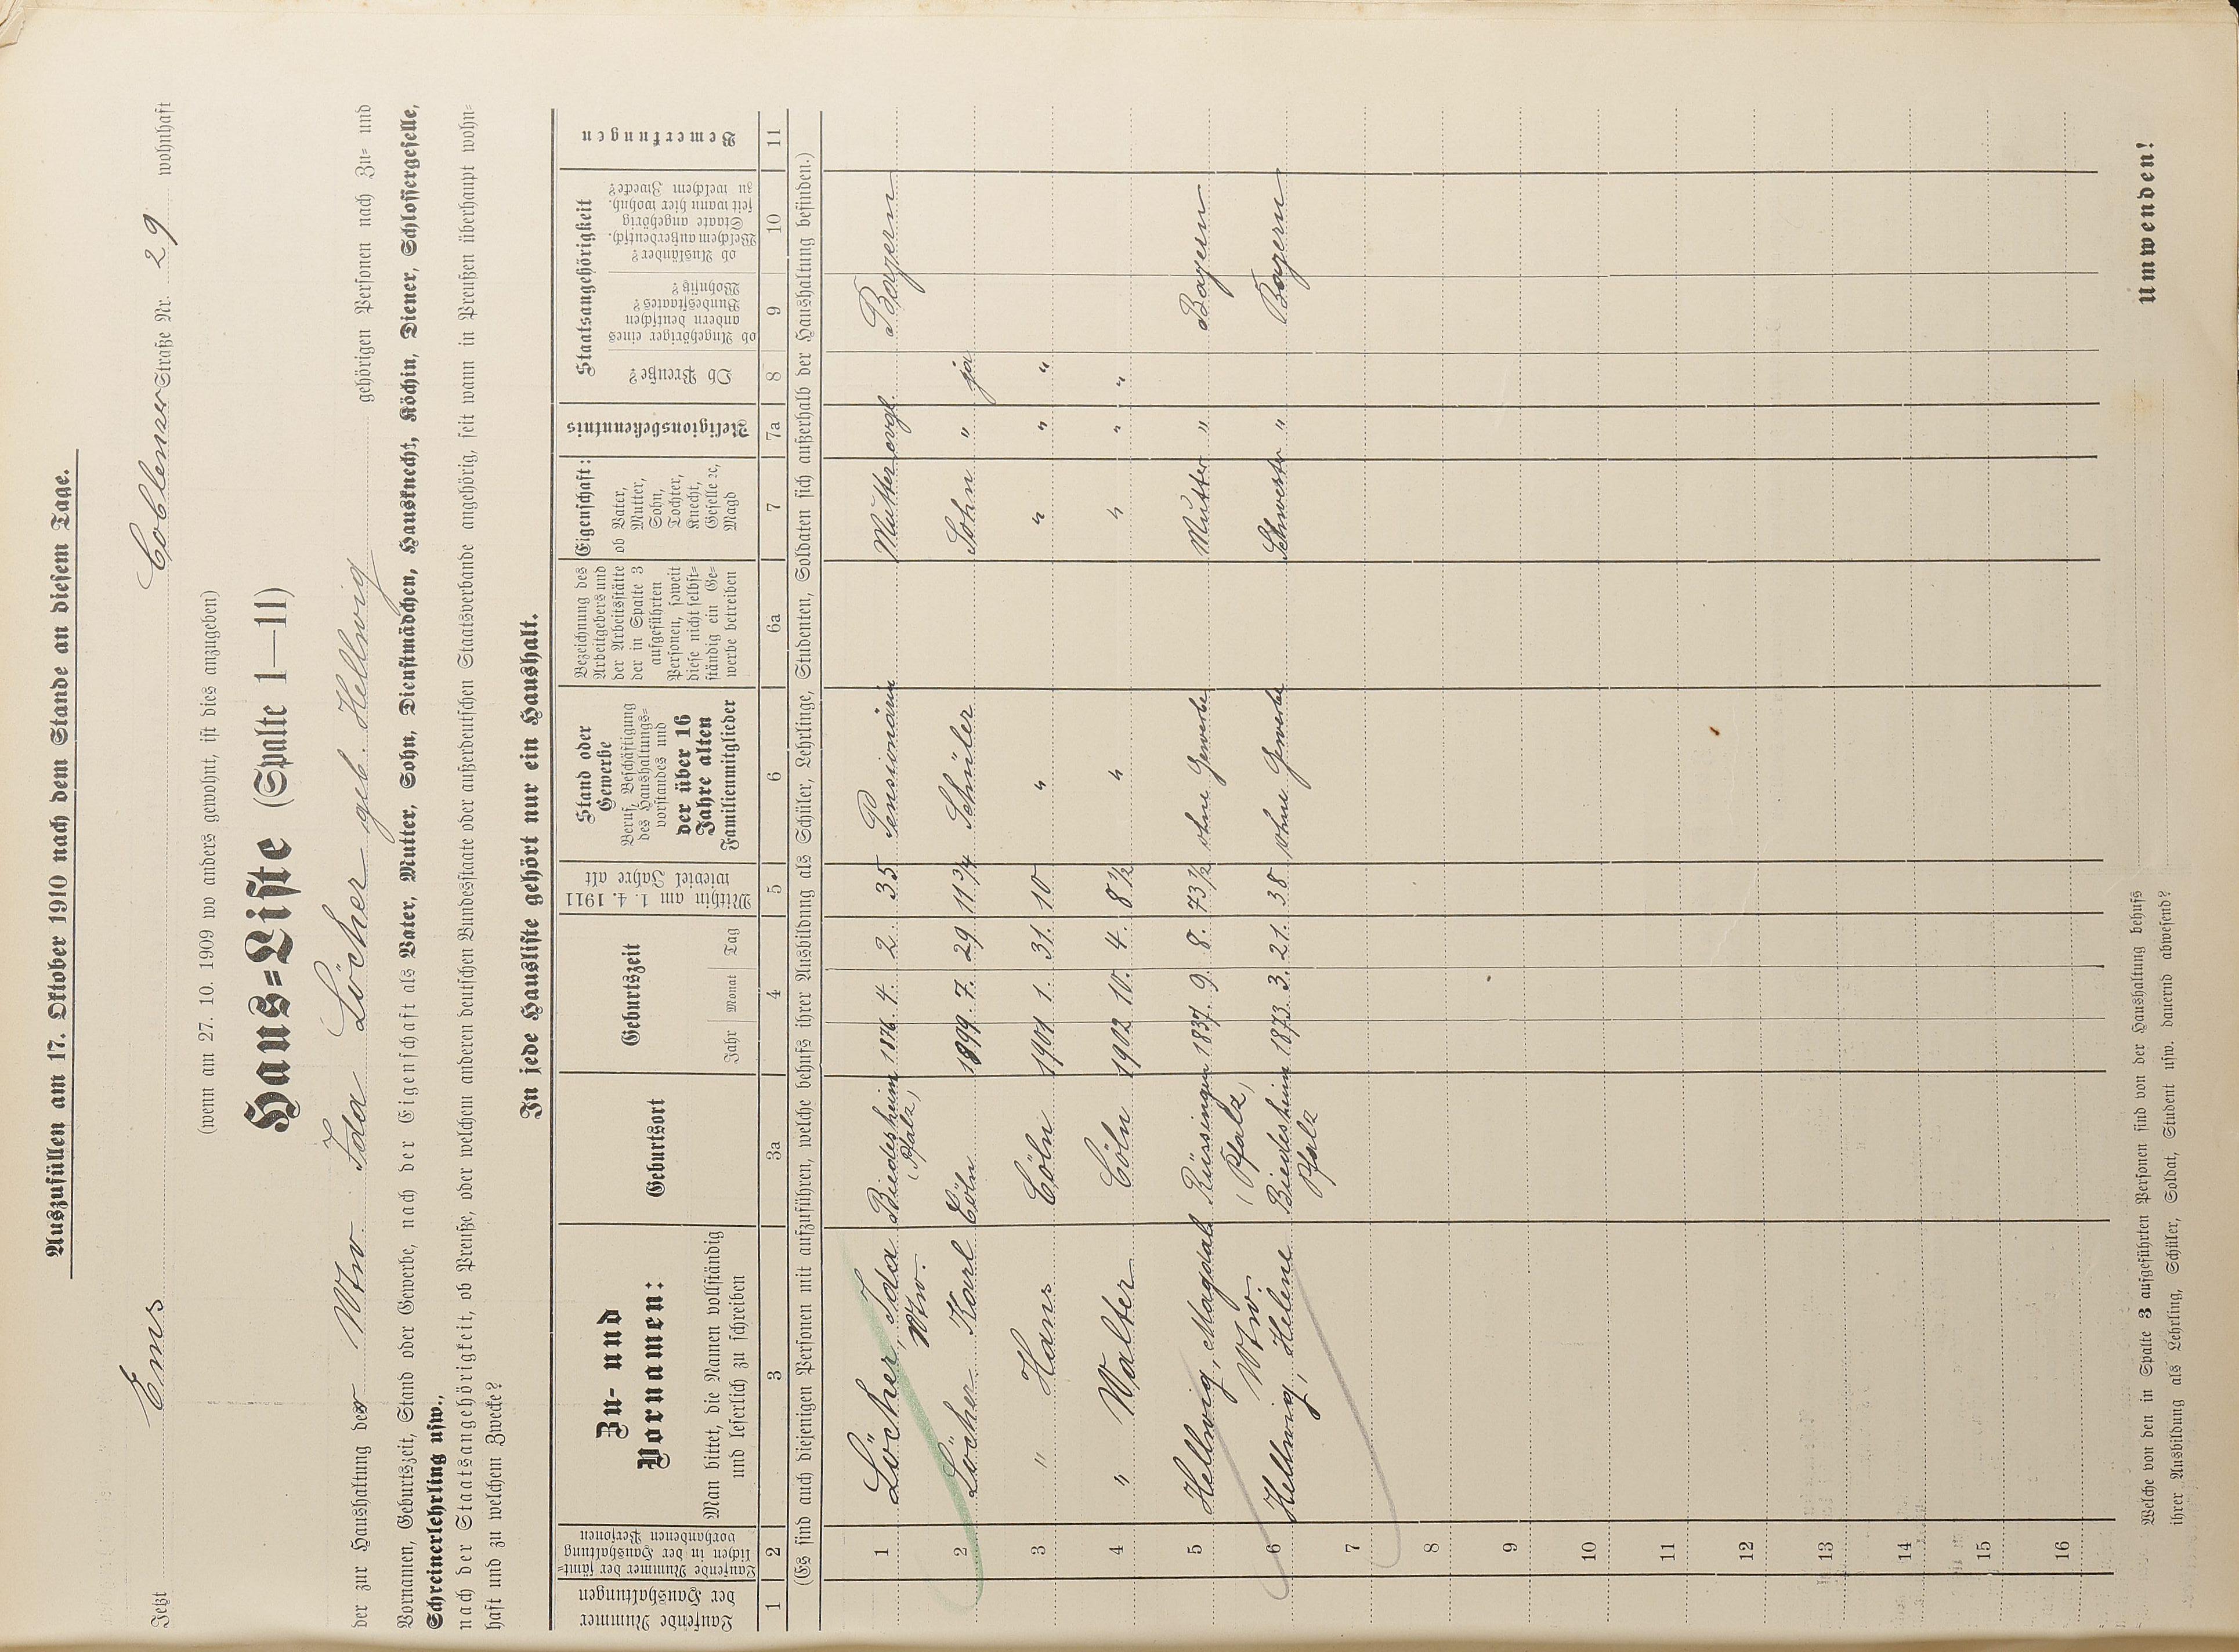 Auszufüllen am 17. Oktober 1910 nach dem Stande an diesem Tage.
Jetzt Ems Coblenzer Straße Nr. 29 wohnhaft
(wenn am 27. 10. 1909 wo anders gewohnt, ist dies anzugeben)
Haus-Liste (Spalte 1—11)
der zur Haushaltung der Wtw. Ida Löcher geb. Hellwig gehörigen Personen nach Zu- und
Vornamen, Geburtszeit, Stand oder Gewerbe, nach der Eigenschaft als Vater, Mutter, Sohn, Dienstmädchen, Hausknecht, Köchin, Diener, Schlossergeselle,
Schreinerlehrling usw.,
nach der Staatsangehörigkeit, ob Preuße, oder welchem anderen deutschen Bundesstaate oder außerdeutschen Staatsverbande angehörig, seit wann in Preußen überhaupt wohn-
haft und zu welchem Zwecke?
In jede Hausliste gehört nur ein Haushalt.
Laufende Nummer
der Haushaltungen
Laufende Nummer der sämt-
lichen in der Haushaltung
vorhandenen Personen
Zu- und
Vornamen:
Man bittet, die Namen vollständig
und leserlich zu schreiben
Geburtsort
Geburtszeit
Jahr Monat Tag
Mithin am 1. 4. 1911
wieviel Jahre alt
Stand oder
Gewerbe
Beruf, Beschäftigung
des Haushaltungs-
vorstandes und
der über 16
Jahre alten
Familienmitglieder
Bezeichnung des
Arbeitgebers und
der Arbeitsstätte
der in Spalte 3
aufgeführten
Personen, soweit
diese nicht selbst-
ständig ein Ge-
werbe betreiben
Eigenschaft:
ob Vater,
Mutter,
Sohn,
Tochter,
Knecht,
Geselle ꝛc,
Magd
Religionsbekenntnis
Staatsangehörigkeit
Ob Preuße?
ob Angehöriger eines
andern deutschen
Bundesstaates?
Wohnsitz?
ob Ausländer?
Welchem außerdeutsch.
Staate angehörig
seit wann hier wohnh.
zu welchem Zwecke?
Bemerkungen
1 2 3 3a 4 5 6 6a 7 7a 8 9 10 11
(Es sind auch diejenigen Personen mit aufzuführen, welche behufs ihrer Ausbildung als Schüler, Lehrlinge, Studenten, Soldaten sich außerhalb der Haushaltung befinden.)
1 Löcher, Ida Biedesheim 1876. 4. 2. 35 Pensionärin Mutter evgl. Bayern
Wtw. (Pfalz)
2 Löcher Karl Cöln 1899. 7. 29. 11 3/4 Schüler Sohn " ja
3 " Hans Cöln 1901 1. 31. 10 " " " "
4 " Walter Cöln 1902 10. 4. 8 1/2 " " " "
5 Hellwig, Magdal. Rüssingen 1837. 9. 8. 73 1/2 ohne Gewerbe Mutter " Bayern
Wtw. (Pfalz)
6 Hellwig, Helene Biedesheim 1873. 3. 21. 38 ohne Gewerbe Schwester " Bayern
Pfalz
7
8
9
10
11
12
13
14
15
16
Welche von den in Spalte 3 aufgeführten Personen sind von der Haushaltung behufs
ihrer Ausbildung als Lehrling, Schüler, Soldat, Student usw. dauernd abwesend?
Umwenden!